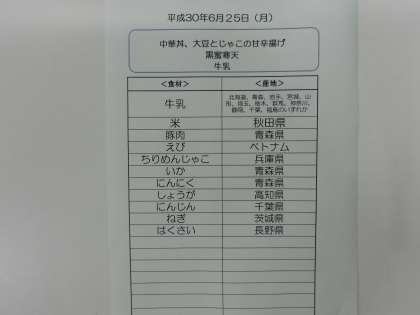 平成30年6月25日（月）
中華丼、大豆とじゃこの甘辛揚げ
黒蜜寒天
牛乳
＜食材＞ ＜産地＞
牛乳 北海道、青森、岩手、宮城、山形、埼玉、栃木、群馬、神奈川、静岡、千葉、福島のいずれか
米 秋田県
豚肉 青森県
えび ベトナム
ちりめんじゃこ 兵庫県
いか 青森県
にんにく 青森県
しょうが 高知県
にんじん 千葉県
ねぎ 茨城県
はくさい 長野県